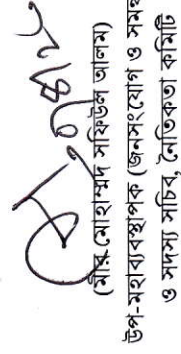 (মীর মোহাম্মদ সফিউল আলম)
উপ-মহাব্যবস্থাপক (জনসংযোগ ও সমন্বয়
ও সদস্য সচিব, নৈতিকতা কমিটি